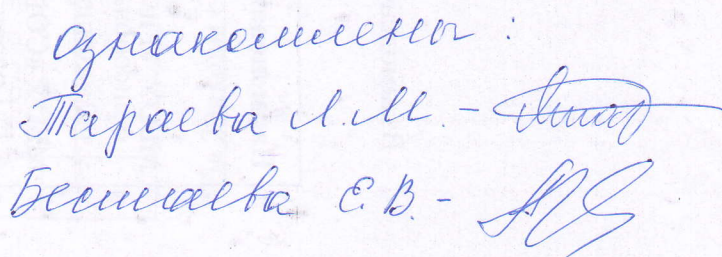 ознакомлены:
Тараева Л.М. -
Бесшаева Е.В. -